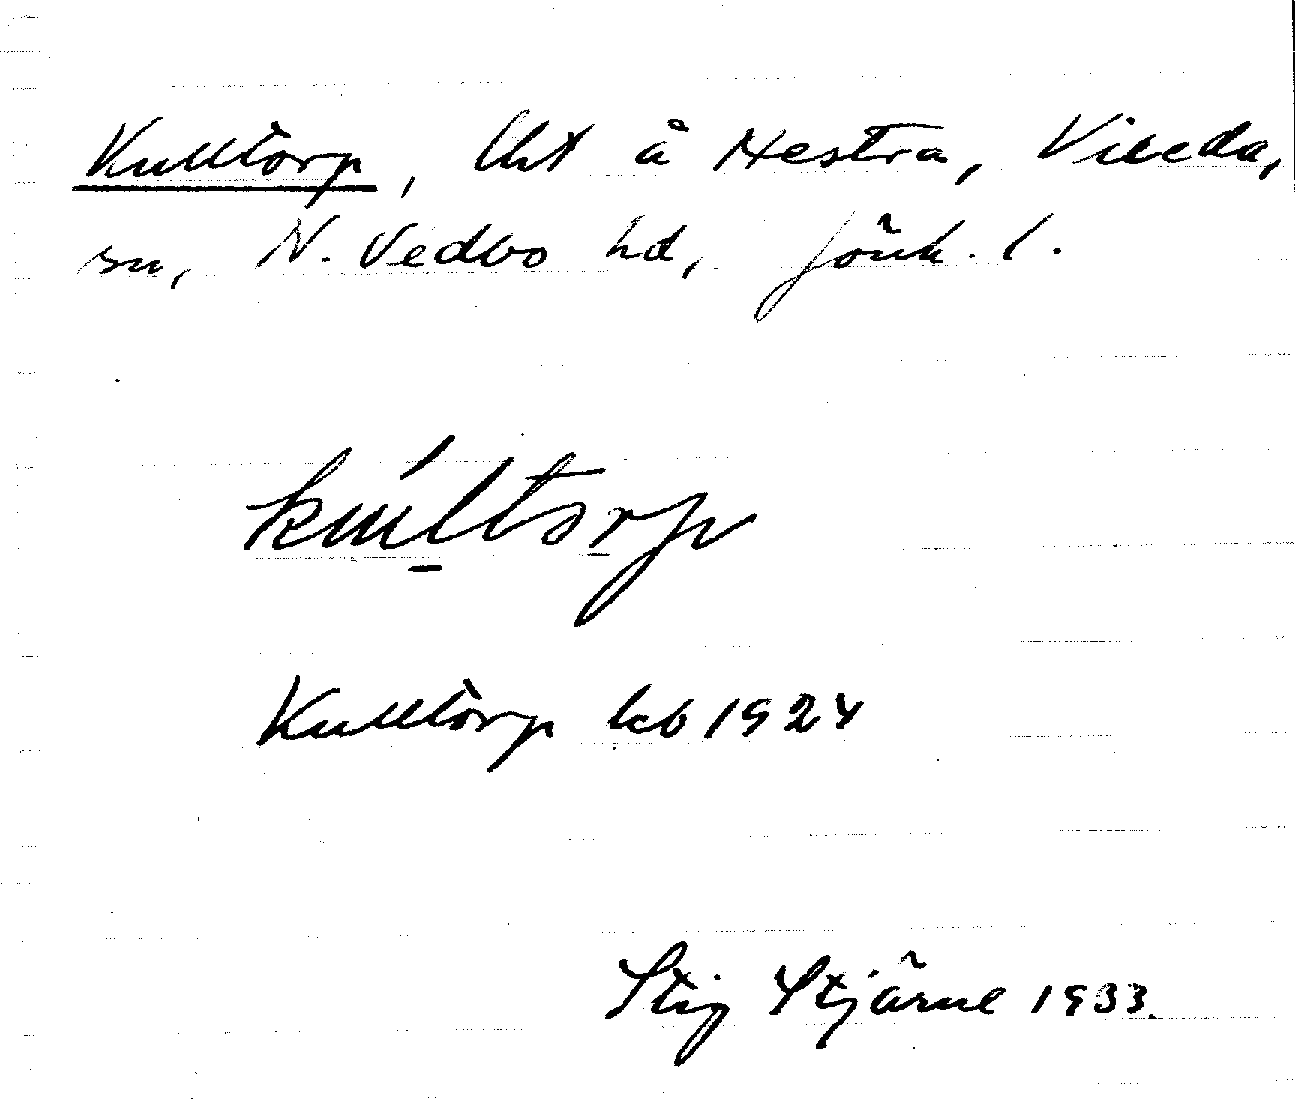 Kulltorp, lht å Hestra, Vireda,
sn, N. Vedbo hd, Jönk. l.
kúltorp
Kulltorp kb 1924
Stig Stjärne 1933.